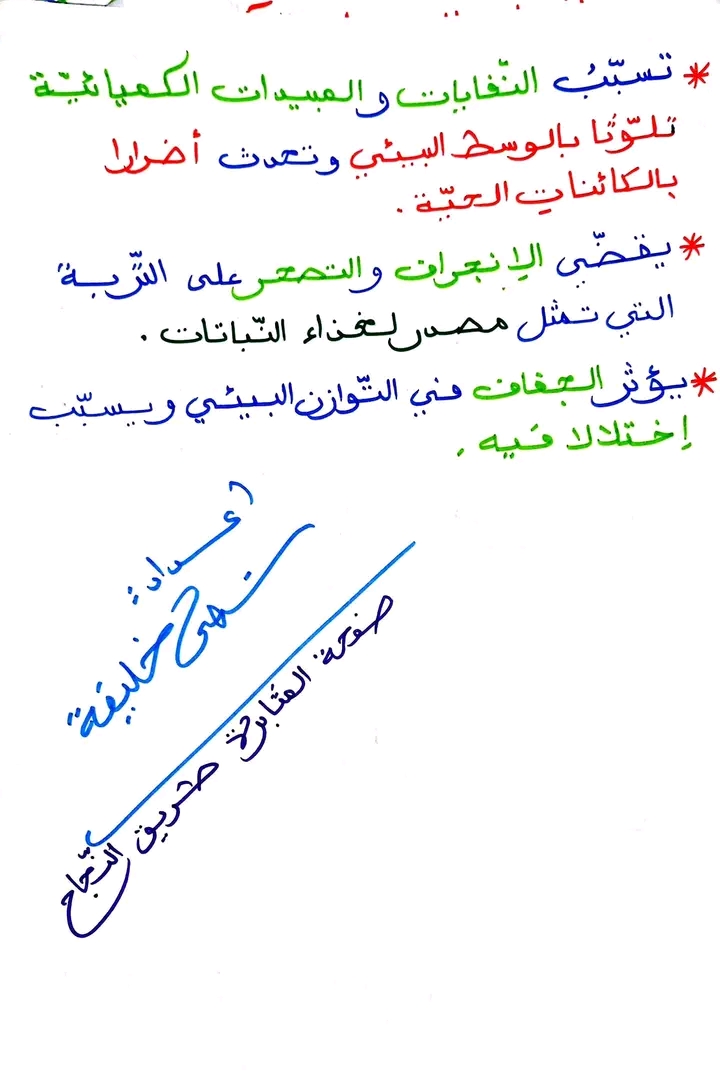 * تسبّبُ النّفايات والمبيدات الكميائيّة
تلوّثا بالوسط البيئي وتحدث أضرارا
بالكائنات الحيّة.
* يقضّي الإنجراف والتصحر على التّربة
التي تمثل مصدر لغذاء النّباتات.
* يؤثر الجفاف في التّوازن البيئي ويسبّب
إختلالا فيه.
إعداد:
خليفة
صفحة المثابرة طريق النّجاح